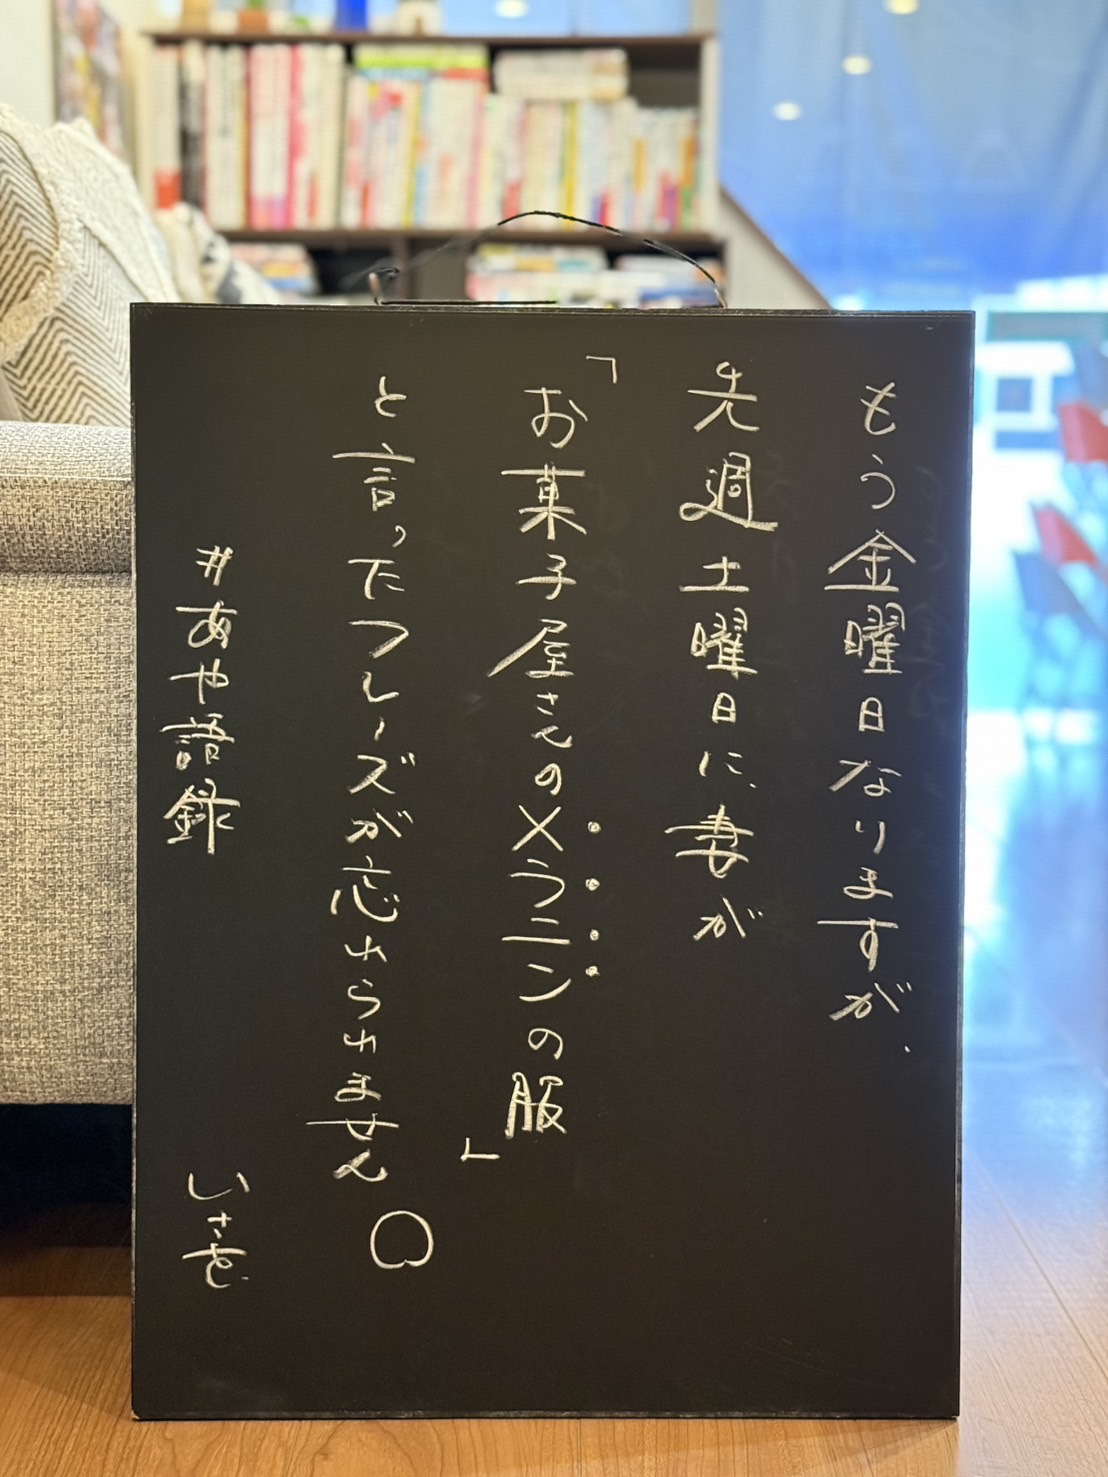 もう金曜日なりますが、
先週土曜日に、妻が
「お菓子屋さんのメラニンの服」
と言ったフレーズが忘れられません。
#あや語録
いさを